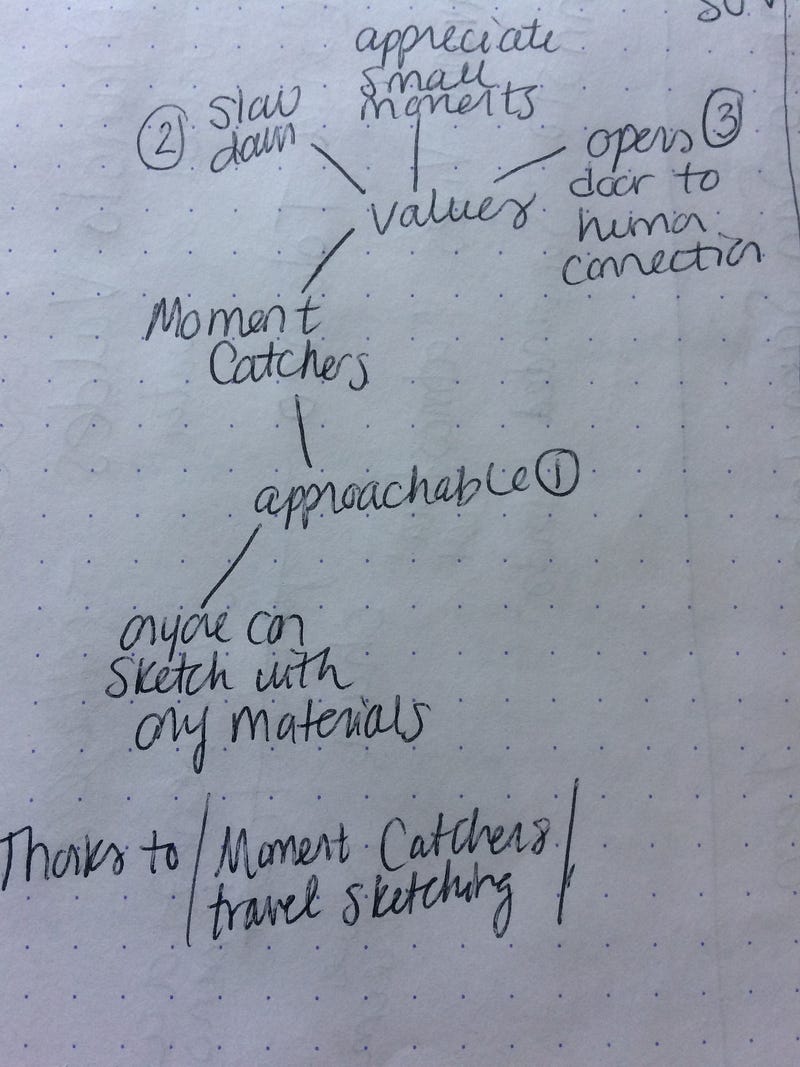 appreciate
small
moments
② slow
down
opens ③
door to
human
connection
values
Moment
Catchers
approachable ①
anyone can
sketch with
any materials
Thanks to / Moment Catchers /
travel sketching